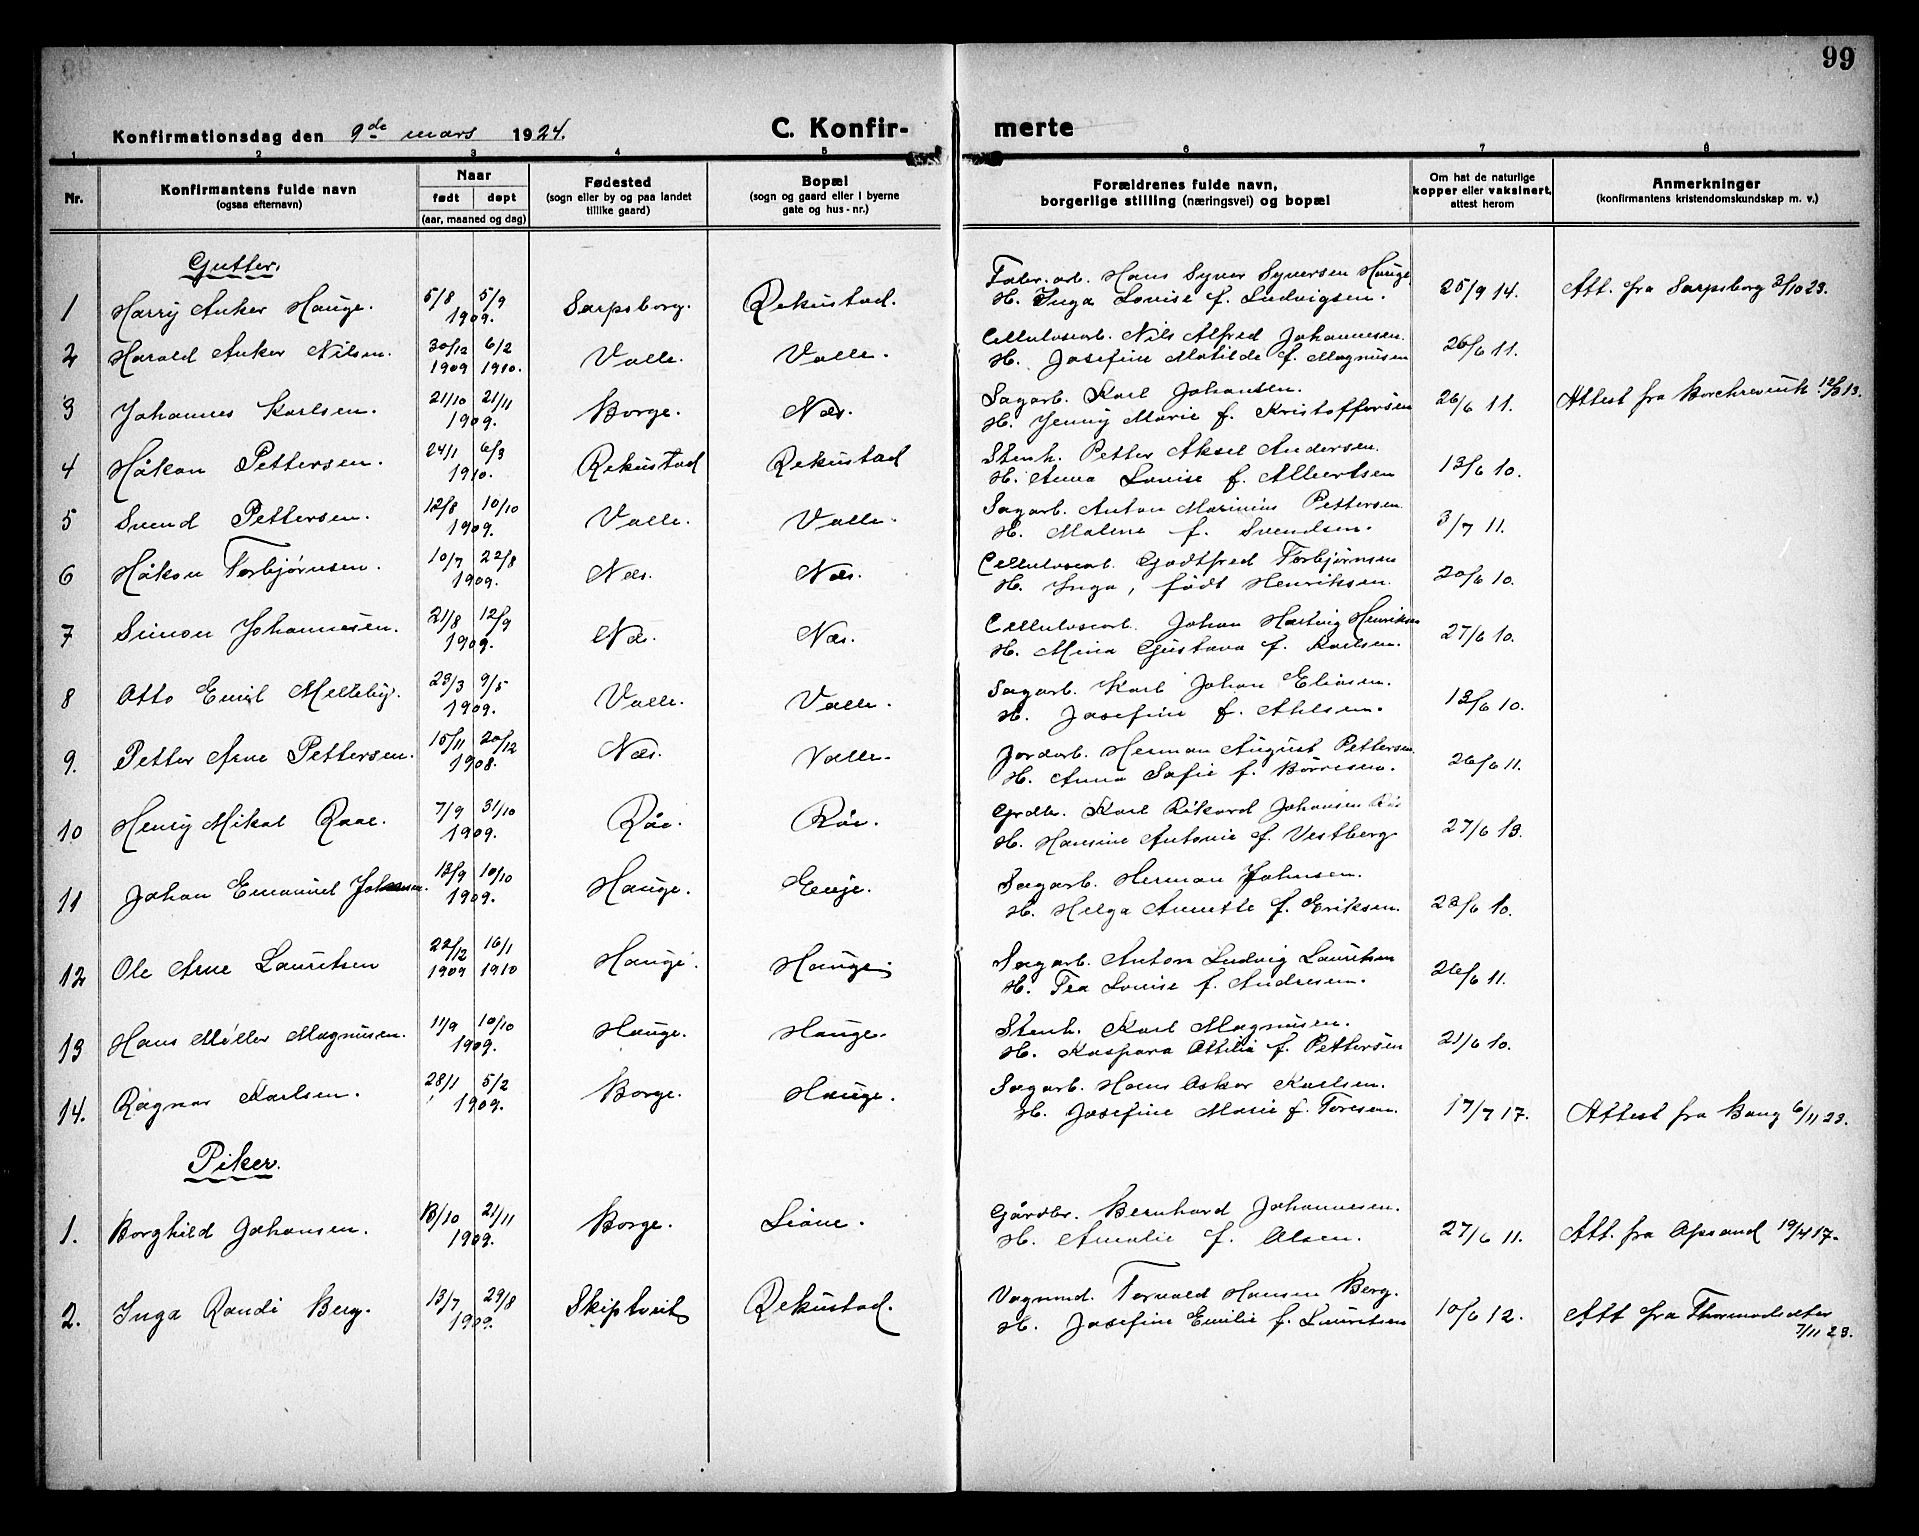 99
Konfirmationsdag den 9de mars 1924.
C. Konfir-
merte
1 2 3 4 5 6 7 8
Nr.
Konfirmantens fulde navn
(ogsaa efternavn)
Naar
født døpt
(aar, maaned og dag)
Fødested
(sogn eller by og paa landet
tillike gaard)
Bopæl
(sogn og gaard eller i byerne
gate og hus-nr.)
Forældrenes fulde navn,
borgerlige stilling (næringsvei) og bopæl
Om hat de naturlige
kopper eller vaksinert,
attest herom
Anmerkninger
(konfirmantens kristendomskundskap m. v.)
Gutter.
1 Harry Anker Hauge. 5/8 5/9 1909. Sarpsborg. Rekustad. Fabr.arb. Hans Syver Syversen Hauge
H. Inga Lovise f. Ludvigsen. 25/9 14. Att. fra Sarpsborg 3/10 23.
2 Harald Anker Nilsen. 30/12 1909 6/2 1910. Valle. Valle. Cellulosearb. Nils Alfred Johannesen.
H. Josefine Matilde f. Magnusen 26/6 11.
3 Johannes Karlsen. 21/10 21/11 1909. Borge. Næs. Sagarb. Karl Johansen.
H. Jenny Marie f. Kristoffersen 26/6 11. Attest fra
4 Håkon Pettersen. 24/1 6/3 1910. Rekustad Rekustad Stenh. Petter Aksel Andersen.
H. Anna Lovise f. Albertsen 13/6 10.
5 Svend Pettersen. 12/8 10/10 1909. Valle. Valle. Sagarb. Anton Marinius Pettersen.
H. Malene f. Svendsen. 3/7 11.
6 Håkon Torbjørnsen. 10/7 22/8 1909. Næs. Næs. Cellulosearb. Godtfred Torbjørnsen
H. Inga, født Henriksen. 20/6 10.
7 Simon Johannesen. 21/8 12/9 1909. Næs. Næs. Cellulosearb. Johan Hartvig Henriksen
H. Mina Gustava f. Karlsen. 27/6 10.
8 Otto Emil Melleby. 23/3 9/5 1909. Valle. Valle. Sagarb. Karl Johan Eliasen.
H. Josefine f. Ahlsen. 13/6 10.
9. Petter Arne Pettersen. 15/11 20/12 1908. Næs. Valle. Jordarb. Herman August Pettersen.
H. Anna Sofie f. Børresen. 26/6 11.
10 Henry Mikal Raae. 7/9 31/10 1909. Råe. Råe. Grdbr. Karl Rikard Johansen Råe
H. Hansine Antonie f. Vestberg 27/6 13.
11 Johan Emanuel Johnsen. 13/9 10/10 1909. Hauge. Enje. Sagarb. Herman Johnsen.
H. Helga Annette f. Eriksen. 22/6 10.
12 Ole Arne Lauritsen 22/12 1909 16/1 1910 Hauge. Hauge. Sagarb. Anton Ludvig Lauritsen
H. Tea Lovise f. Andresen. 26/6 11.
13 Hans Møller Magnusen. 11/9 10/10 1909. Hauge. Hauge. Stenh. Karl Magnusen.
H. Kaspara Attilie f. Pettersen 21/6 10.
14. Ragnar Karlsen. 28/1 5/2 1909. Borge. Hauge. Sagarb. Hans Oskar Karlsen.
H. Josefine Marie f. Toresen. 17/7 17. Attest fra Bang 6/11 23.
Piker.
1. Borghild Johansen. 13/10 21/11 1909. Borge. Liane. Gårdbr. Bernhard Johannesen.
H. Amalie f. Olsen. 27/6 11. Att. fra Opsand 19/4 17.
2. Inga Randi Berg. 13/7 29/8 1909. Skiptveit Rekustad. Vognmd. Torvald Hansen Berg.
H. Josefine Emilie f. Lauritsen 10/6 12. Att fra Thormodsæter
7/11 23.